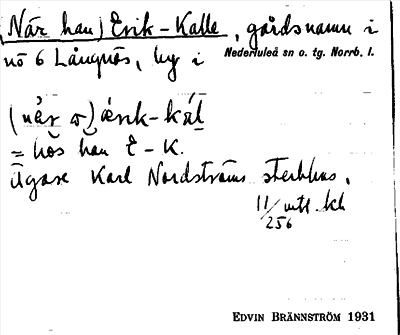 (När han) Erik-Kalle, gårdsnamn i
no 6 Långnäs, by i Nederluleå sn o. tg. Norrb. l.
= hos han E-K.
Ägare Karl Nordströms sterbhus,
11/256 mtl. kh
EDVIN BRÄNNSTRÖM 1931